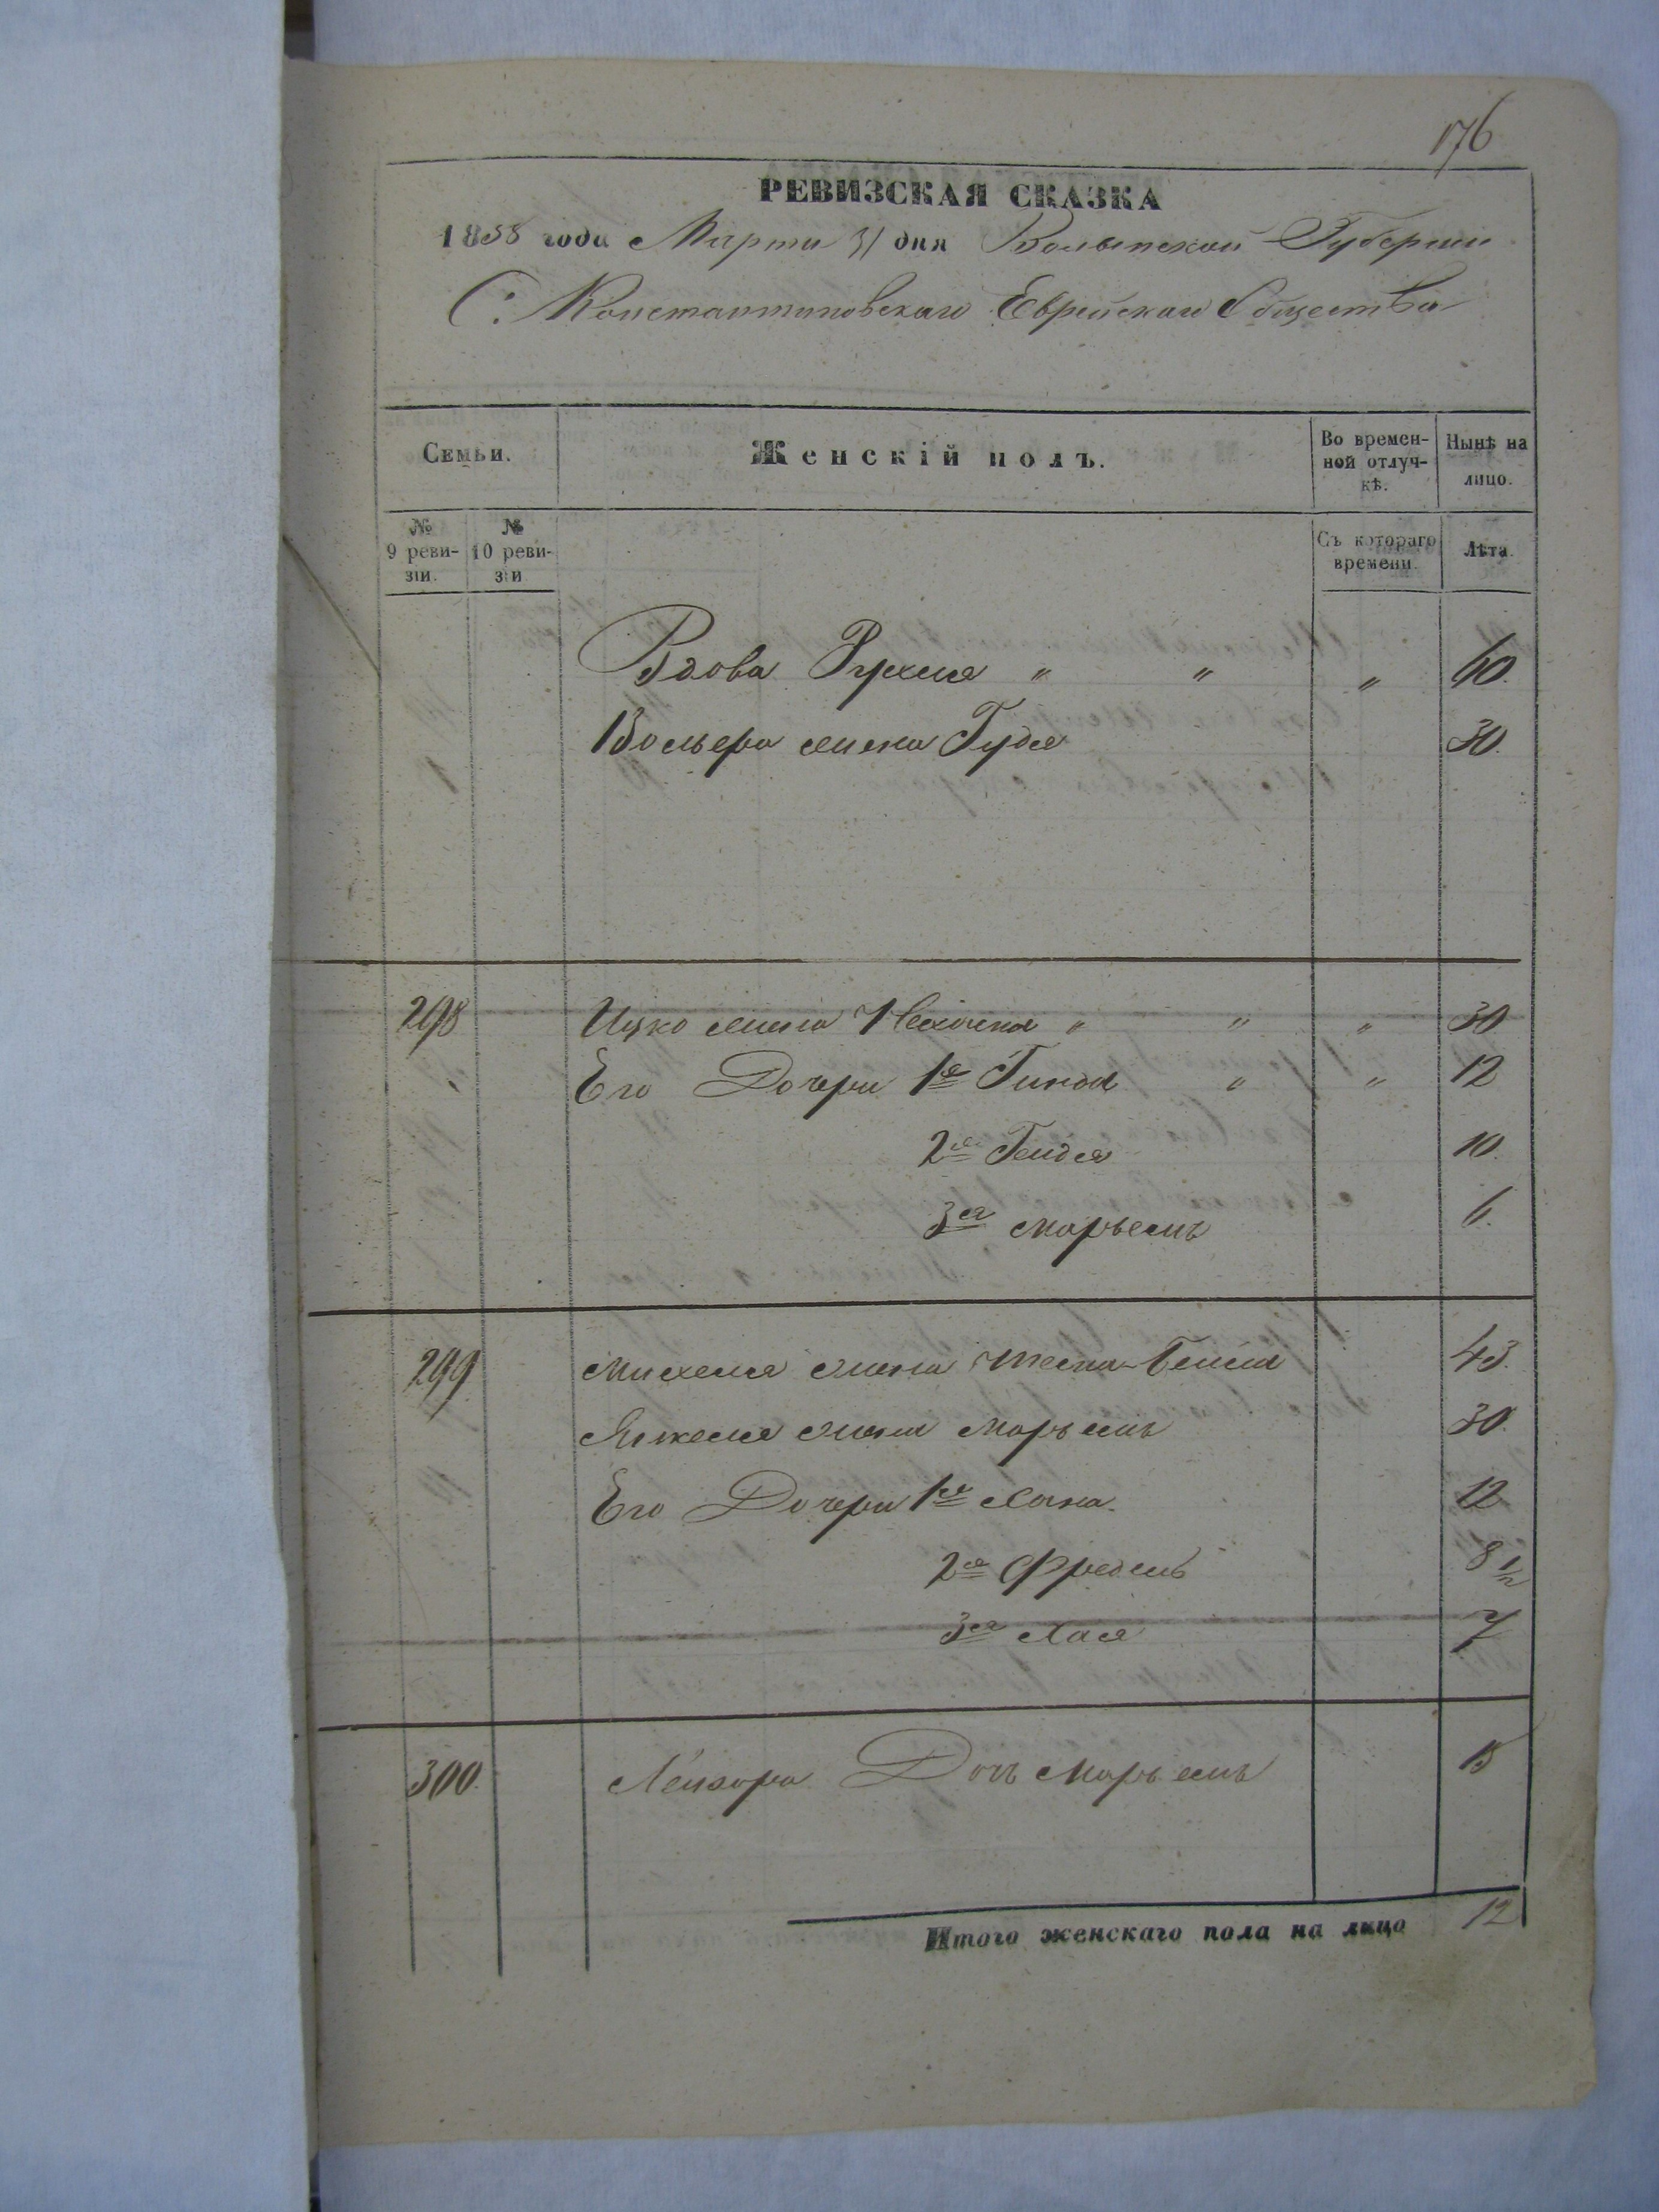 176
РЕВИЗСКАЯ СКАЗКА
1858 года Марта 31 дня Волынской Губернии
С: Константиновскаго Еврейскаго Общества
Семьи.
Женскій полъ.
Во времен-
ной отлуч-
кѣ.
Нынѣ на
лицо.
№
9 реви-
зіи.
№
10 реви-
зіи
Съ котораго
времени.
Лѣта.
Вдова Рухля " " " 60.
жена Гудя 30.
298 Ицко жена " " " 30
Его Дочери 1я " " 12
2я Гендля 10.
3я Марьемъ 6.
299 Михеля жена 43.
Янкеля жена Марьемъ 30.
Его Дочери 1я Хана. 12
2я Фрейдль 8 1/2
3я Хася 7
300. Лейзора Дочь Марьемъ 15
Итого женскаго пола на лицо 12